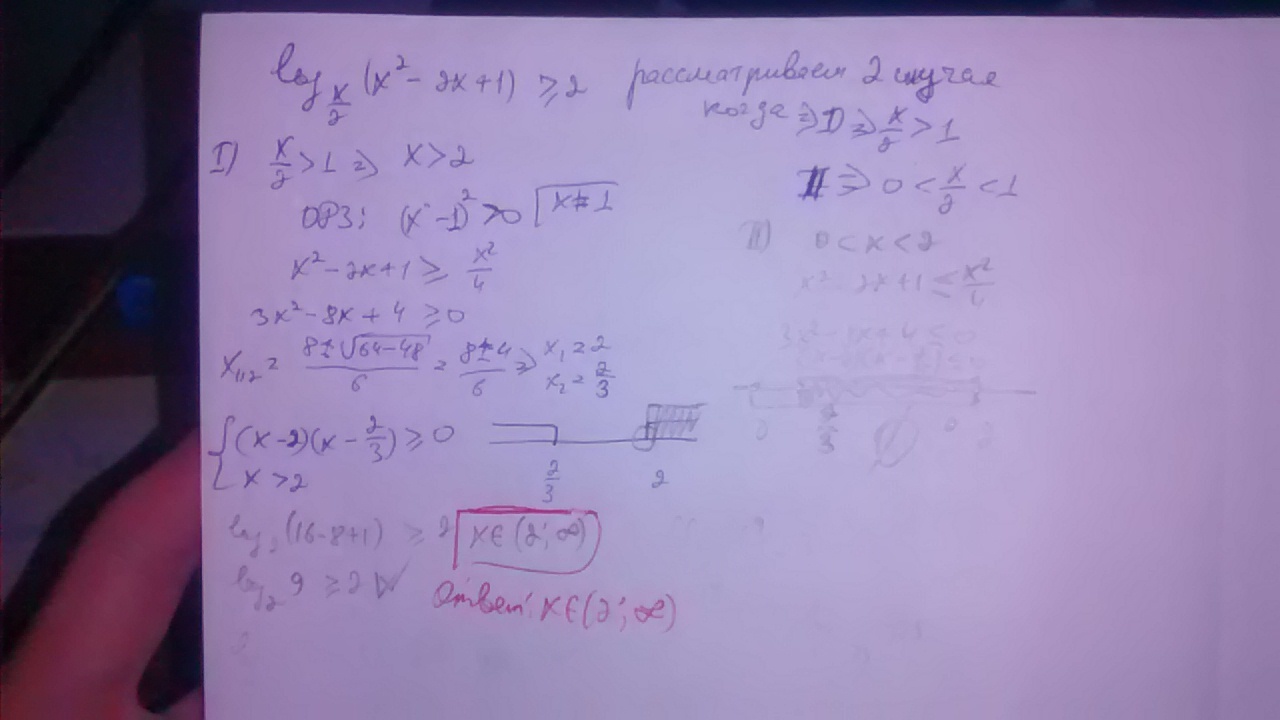 log_{x/2} (x² - 2x + 1) ≥ 2 рассматриваем 2 случая
когда ⇒ I) ⇒ x/2 > 1
II ⇒ 0 < x/2 < 1
I) x/2 > 1 ⇒ x > 2
ОРЗ: (x - 1)² > 0 x ≠ 1
x² - 2x + 1 ≥ x²/4
3x² - 8x + 4 ≥ 0
x₁,₂ = (8 ± √(64 - 48))/6 = (8 ± 4)/6 ⇒ x₁ = 2 x₂ = 2/3
{ (x - 2)(x - 2/3) ≥ 0
x > 2
2/3 2
log₂ (16 - 8 + 1) ≥ 2 x ∈ (2; ∞)
log₂ 9 ≥ 2
Ответ: x ∈ (2; ∞)
II) 0 < x < 2
x² - 2x + 1 ≤ x²/4
3x² - 8x + 4 ≤ 0
0 2/3 2